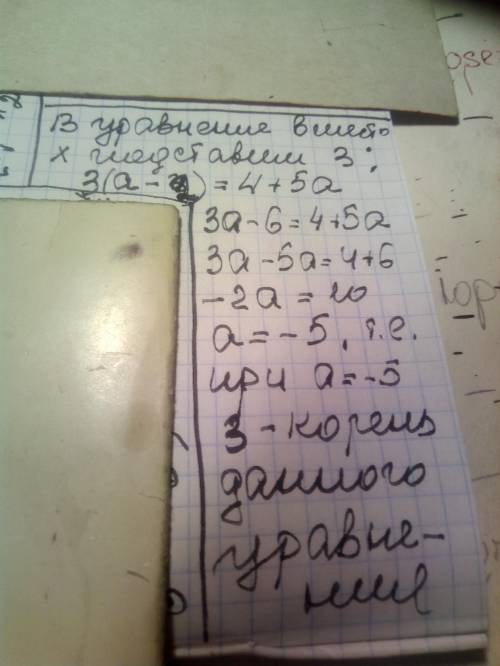 В уравнение вместо
х подставим 3:
3(а - 2) = 4 + 5а
3а - 6 = 4 + 5а
3а - 5а = 4 + 6
- 2а = 10
а = - 5, т.е.
при а = -5
3 - корень
данного
уравне-
ния